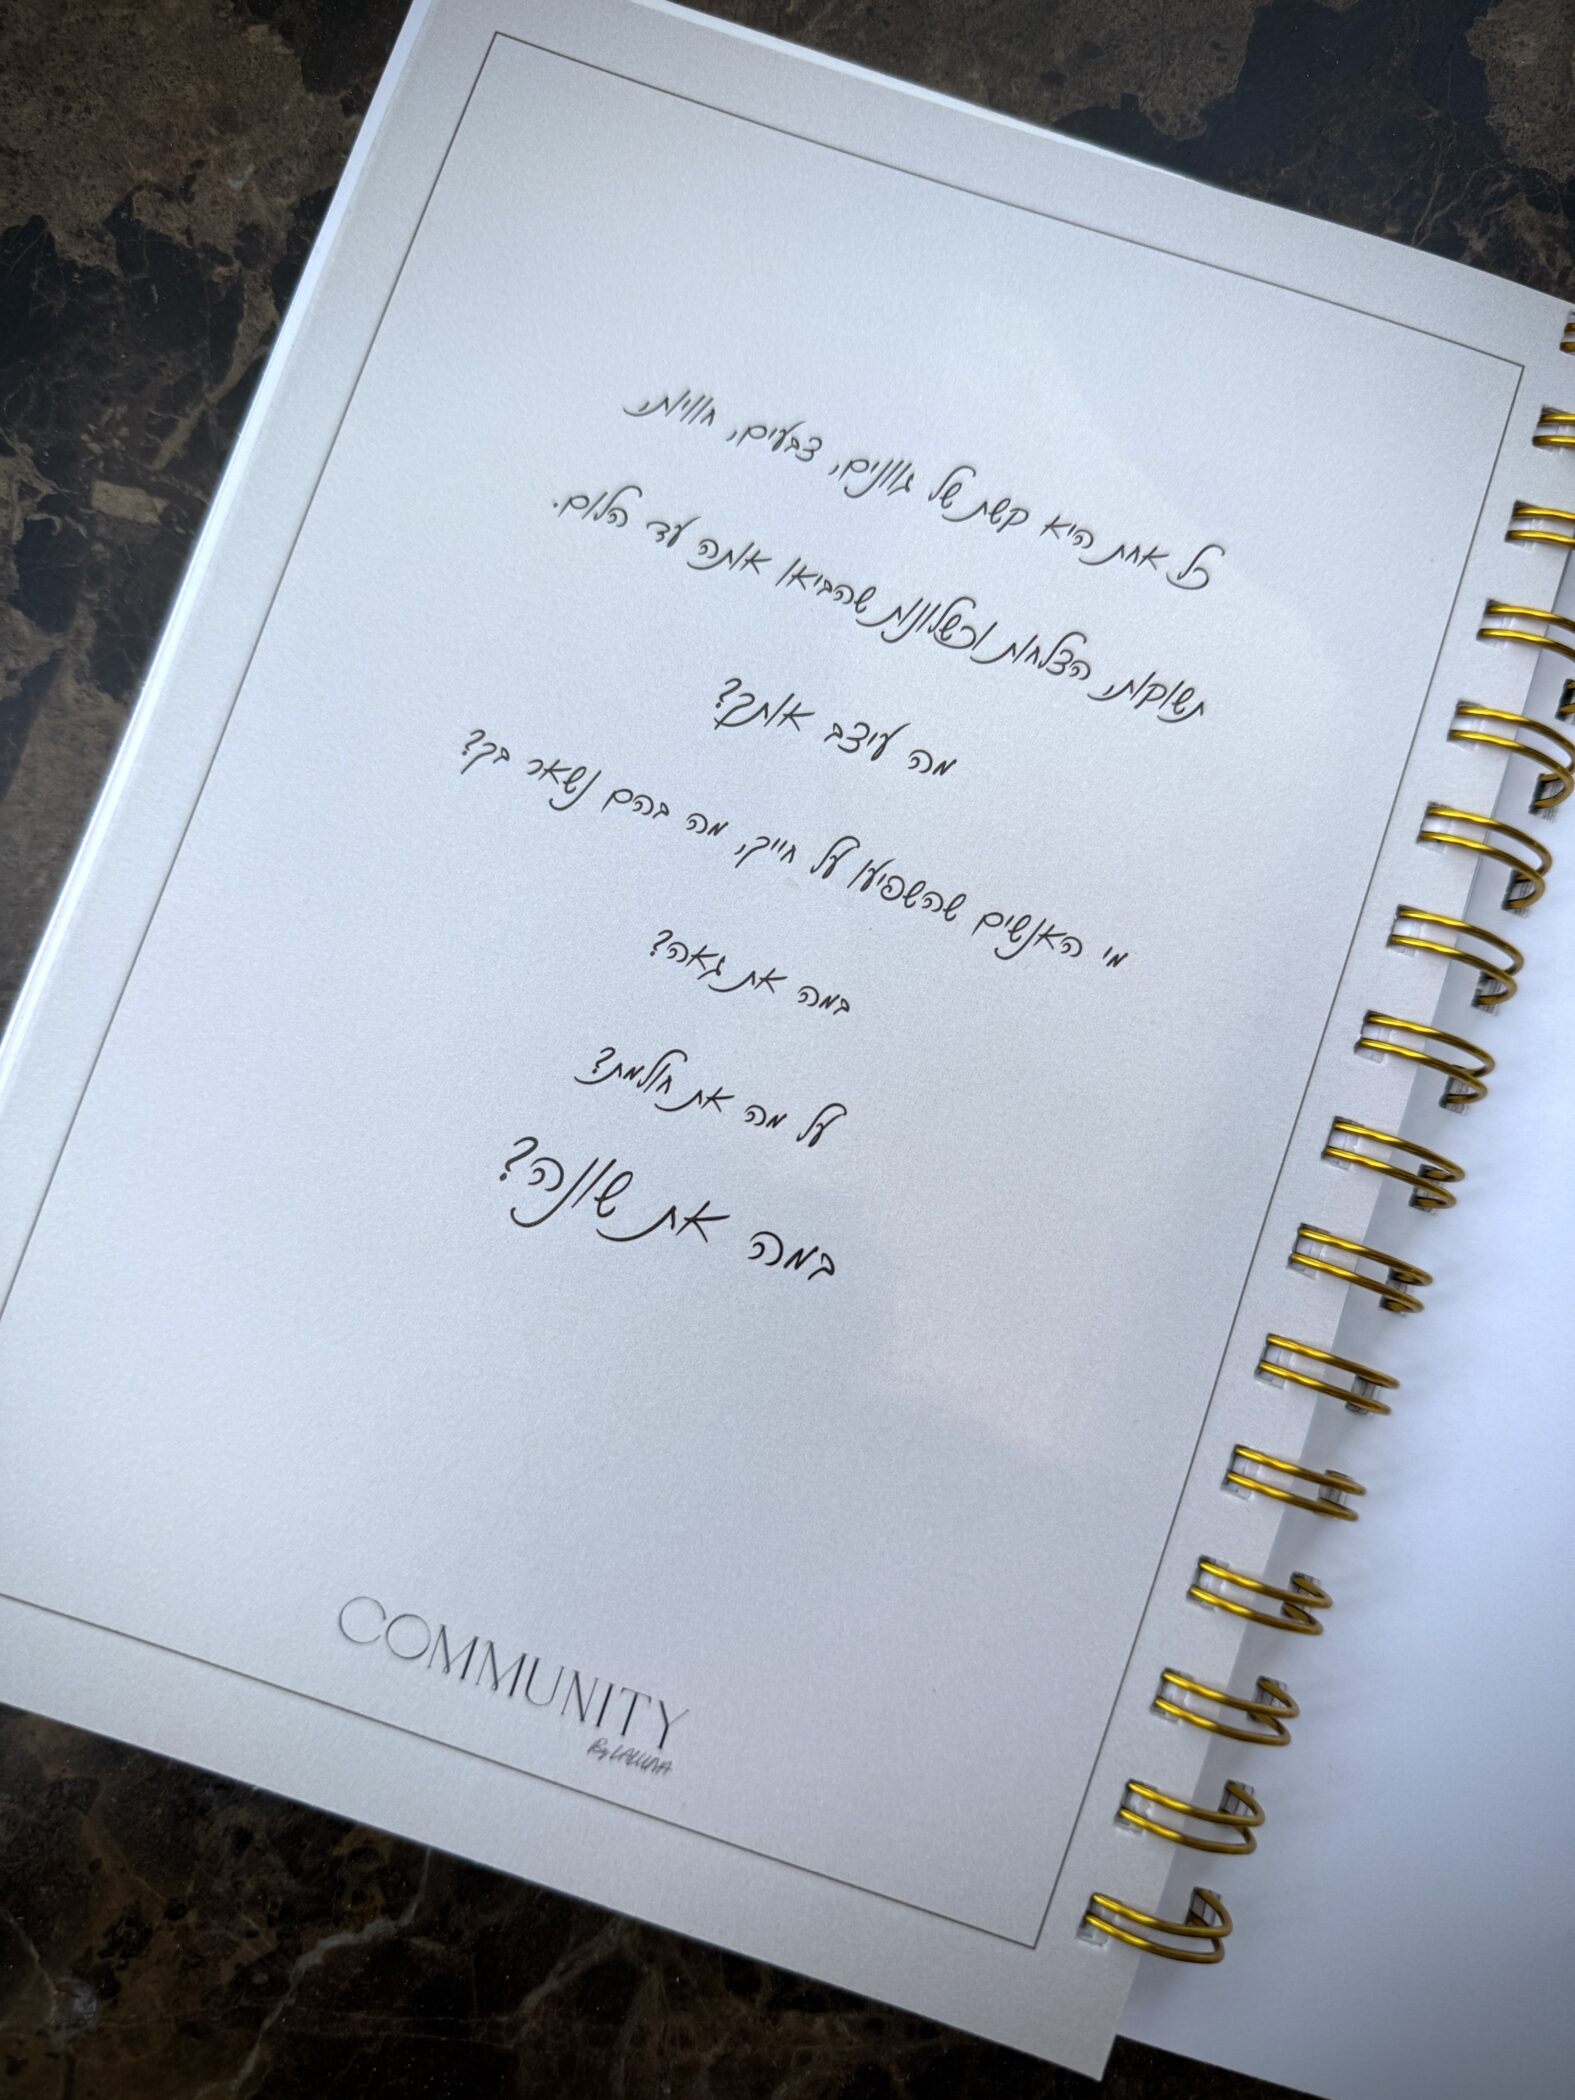 כל אחת היא קשת של גוונים, צבעים, חוויות,
תשוקות, הצלחות וכשלונות שהביאו אותה עד הלום.
מה עיצב אותך?
מי האנשים שהשפיעו על חייך, מה בהם נשאר בך?
במה את גאה?
על מה את חולמת?
במה את שונה?
COMMUNITY
By LALUNA